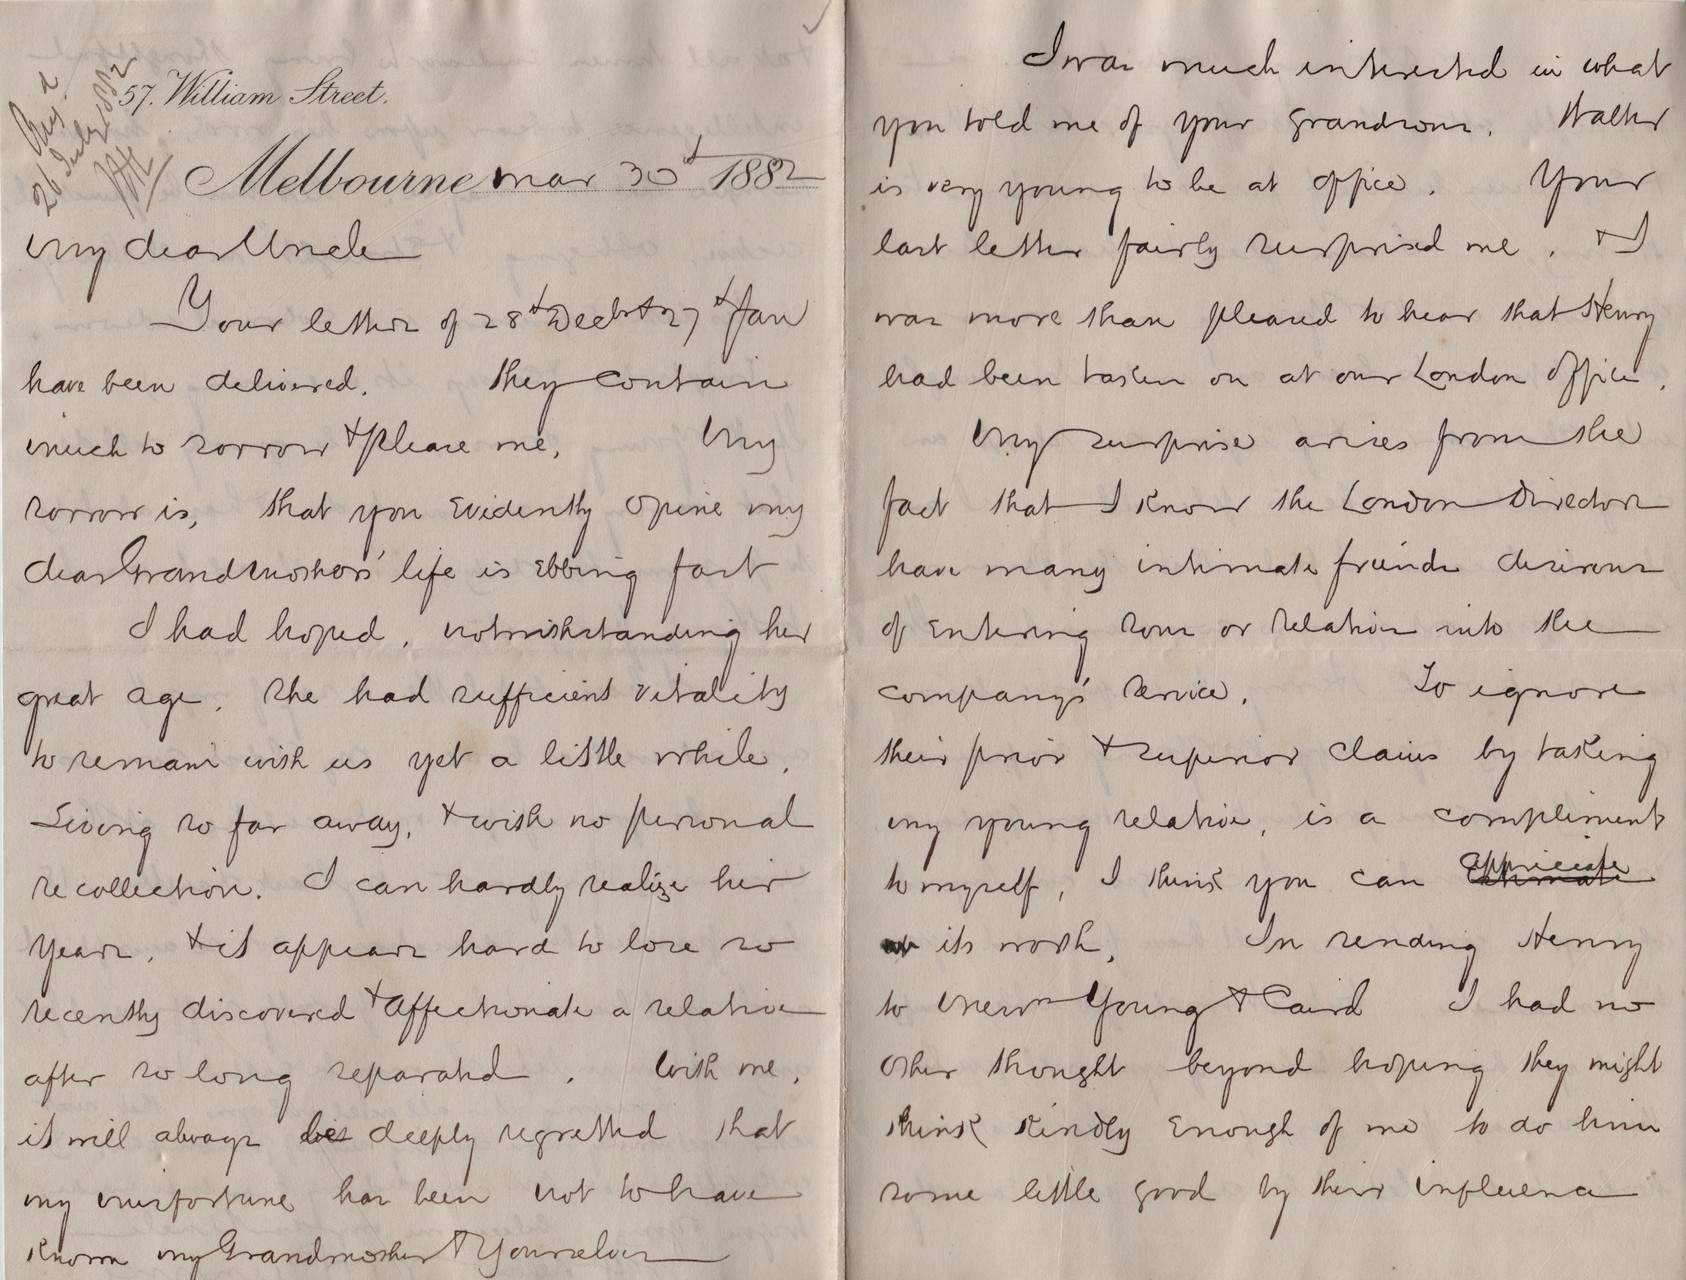 Recd
26 July 1882
57. William Street.
Melbourne Mar 30th 1882
My dear Uncle
Your letters of 28th Decbr & 27th Jan
have been delivered. They contain
much to sorrow & please me. My
sorrow is, that you evidently opine my
dear Grandmothers' life is ebbing fast
I had hoped, notwithstanding her
great age, she had sufficient vitality
to remain with us yet a little while.
Living so far away, & with no personal
recollection. I can hardly realize her
years, & it appears hard to lose so
recently discovered & affectionate a relative
after so long separated. With me,
it will always be deeply regretted that
my misfortune has been not to have
known my Grandmother & Yourselves
I was much interested in what
you told me of your grandsons. Walter
is very young to be at office. Your
last letter fairly surprised me, & I
was more than pleased to hear that Henry
had been taken on at our London office.
My surprise arises from the
fact that I know the London Directors
have many intimate friends desirous
of entering sons or relatives into the
company's service. To ignore
their prior & superior claims by taking
my young relative, is a compliment
to myself, I think you can appreciate
its worth. In sending Henry
to Messrs Young & Caird I had no
other thought beyond hoping they might
think kindly enough of me to do him
some little good by their influence